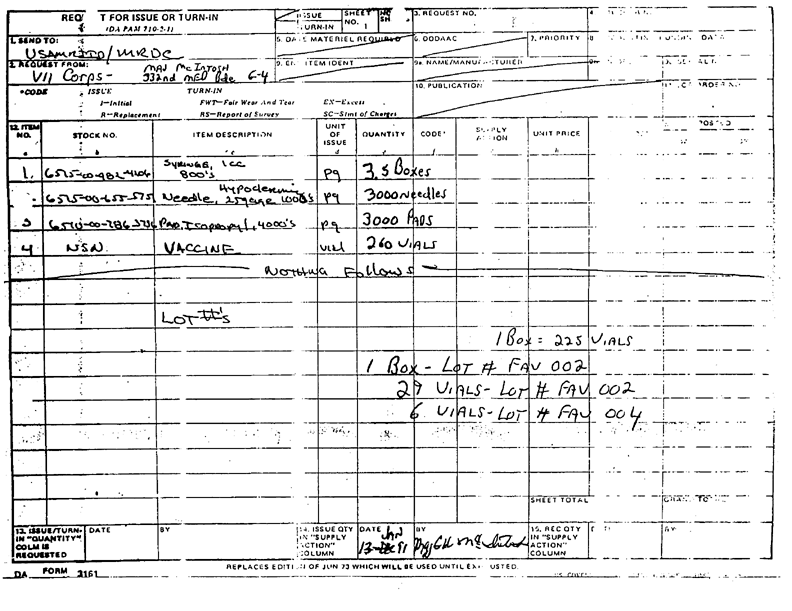 REQ T FOR ISSUE OR TURN-IN
(DA PAM 710-2-1)
ISSUE
URN-IN
SHEET NO. 1
3. REQUEST NO.
1. SEND TO:
USAMRIID/MRDC
5. DATE MATERIEL REQUIRED
6. DODAAC
7. PRIORITY
2. REQUEST FROM:
VII Corps- MAJ McINTOSH 332nd MED Bde G-4
9. ITEM IDENT
9a. NAME/MANUFACTURER
*CODE
ISSUE
TURN-IN
10. PUBLICATION
I-Initial
FWT-Fair Wear And Tear
EX-Excess
R-Replacement
RS-Report of Survey
SC-Stmt of Charges
12. ITEM NO.
STOCK NO.
ITEM DESCRIPTION
UNIT OF ISSUE
QUANTITY
CODE*
SUPPLY ACTION
UNIT PRICE
POSTED
1. 6515-00-982-4206 SYRINGE, 1CC 800's pg 3.5 Boxes
6515-00-655-5751 Needle, Hypodermic 25gage 1000's pg 3000 Needles
3 PAD, Isopropyl, 4000's pg 3000 PADS
4 NSN VACCINE vial 260 VIALS
NOTHING Follows
LOT #'s
1 Box = 225 VIALS
1 Box - LOT # FAV 002
29 VIALS - LOT # FAV 002
6 VIALS - LOT # FAV 004
SHEET TOTAL
13. ISSUE/TURN-IN "QUANTITY" COLM IS REQUESTED
DATE
BY
14. ISSUE QTY IN "SUPPLY ACTION" COLUMN
DATE
JAN
13 91
BY
15. REC QTY IN "SUPPLY ACTION" COLUMN
BY
DA FORM 3161
REPLACES EDITION OF JUN 73 WHICH WILL BE USED UNTIL EXHAUSTED.